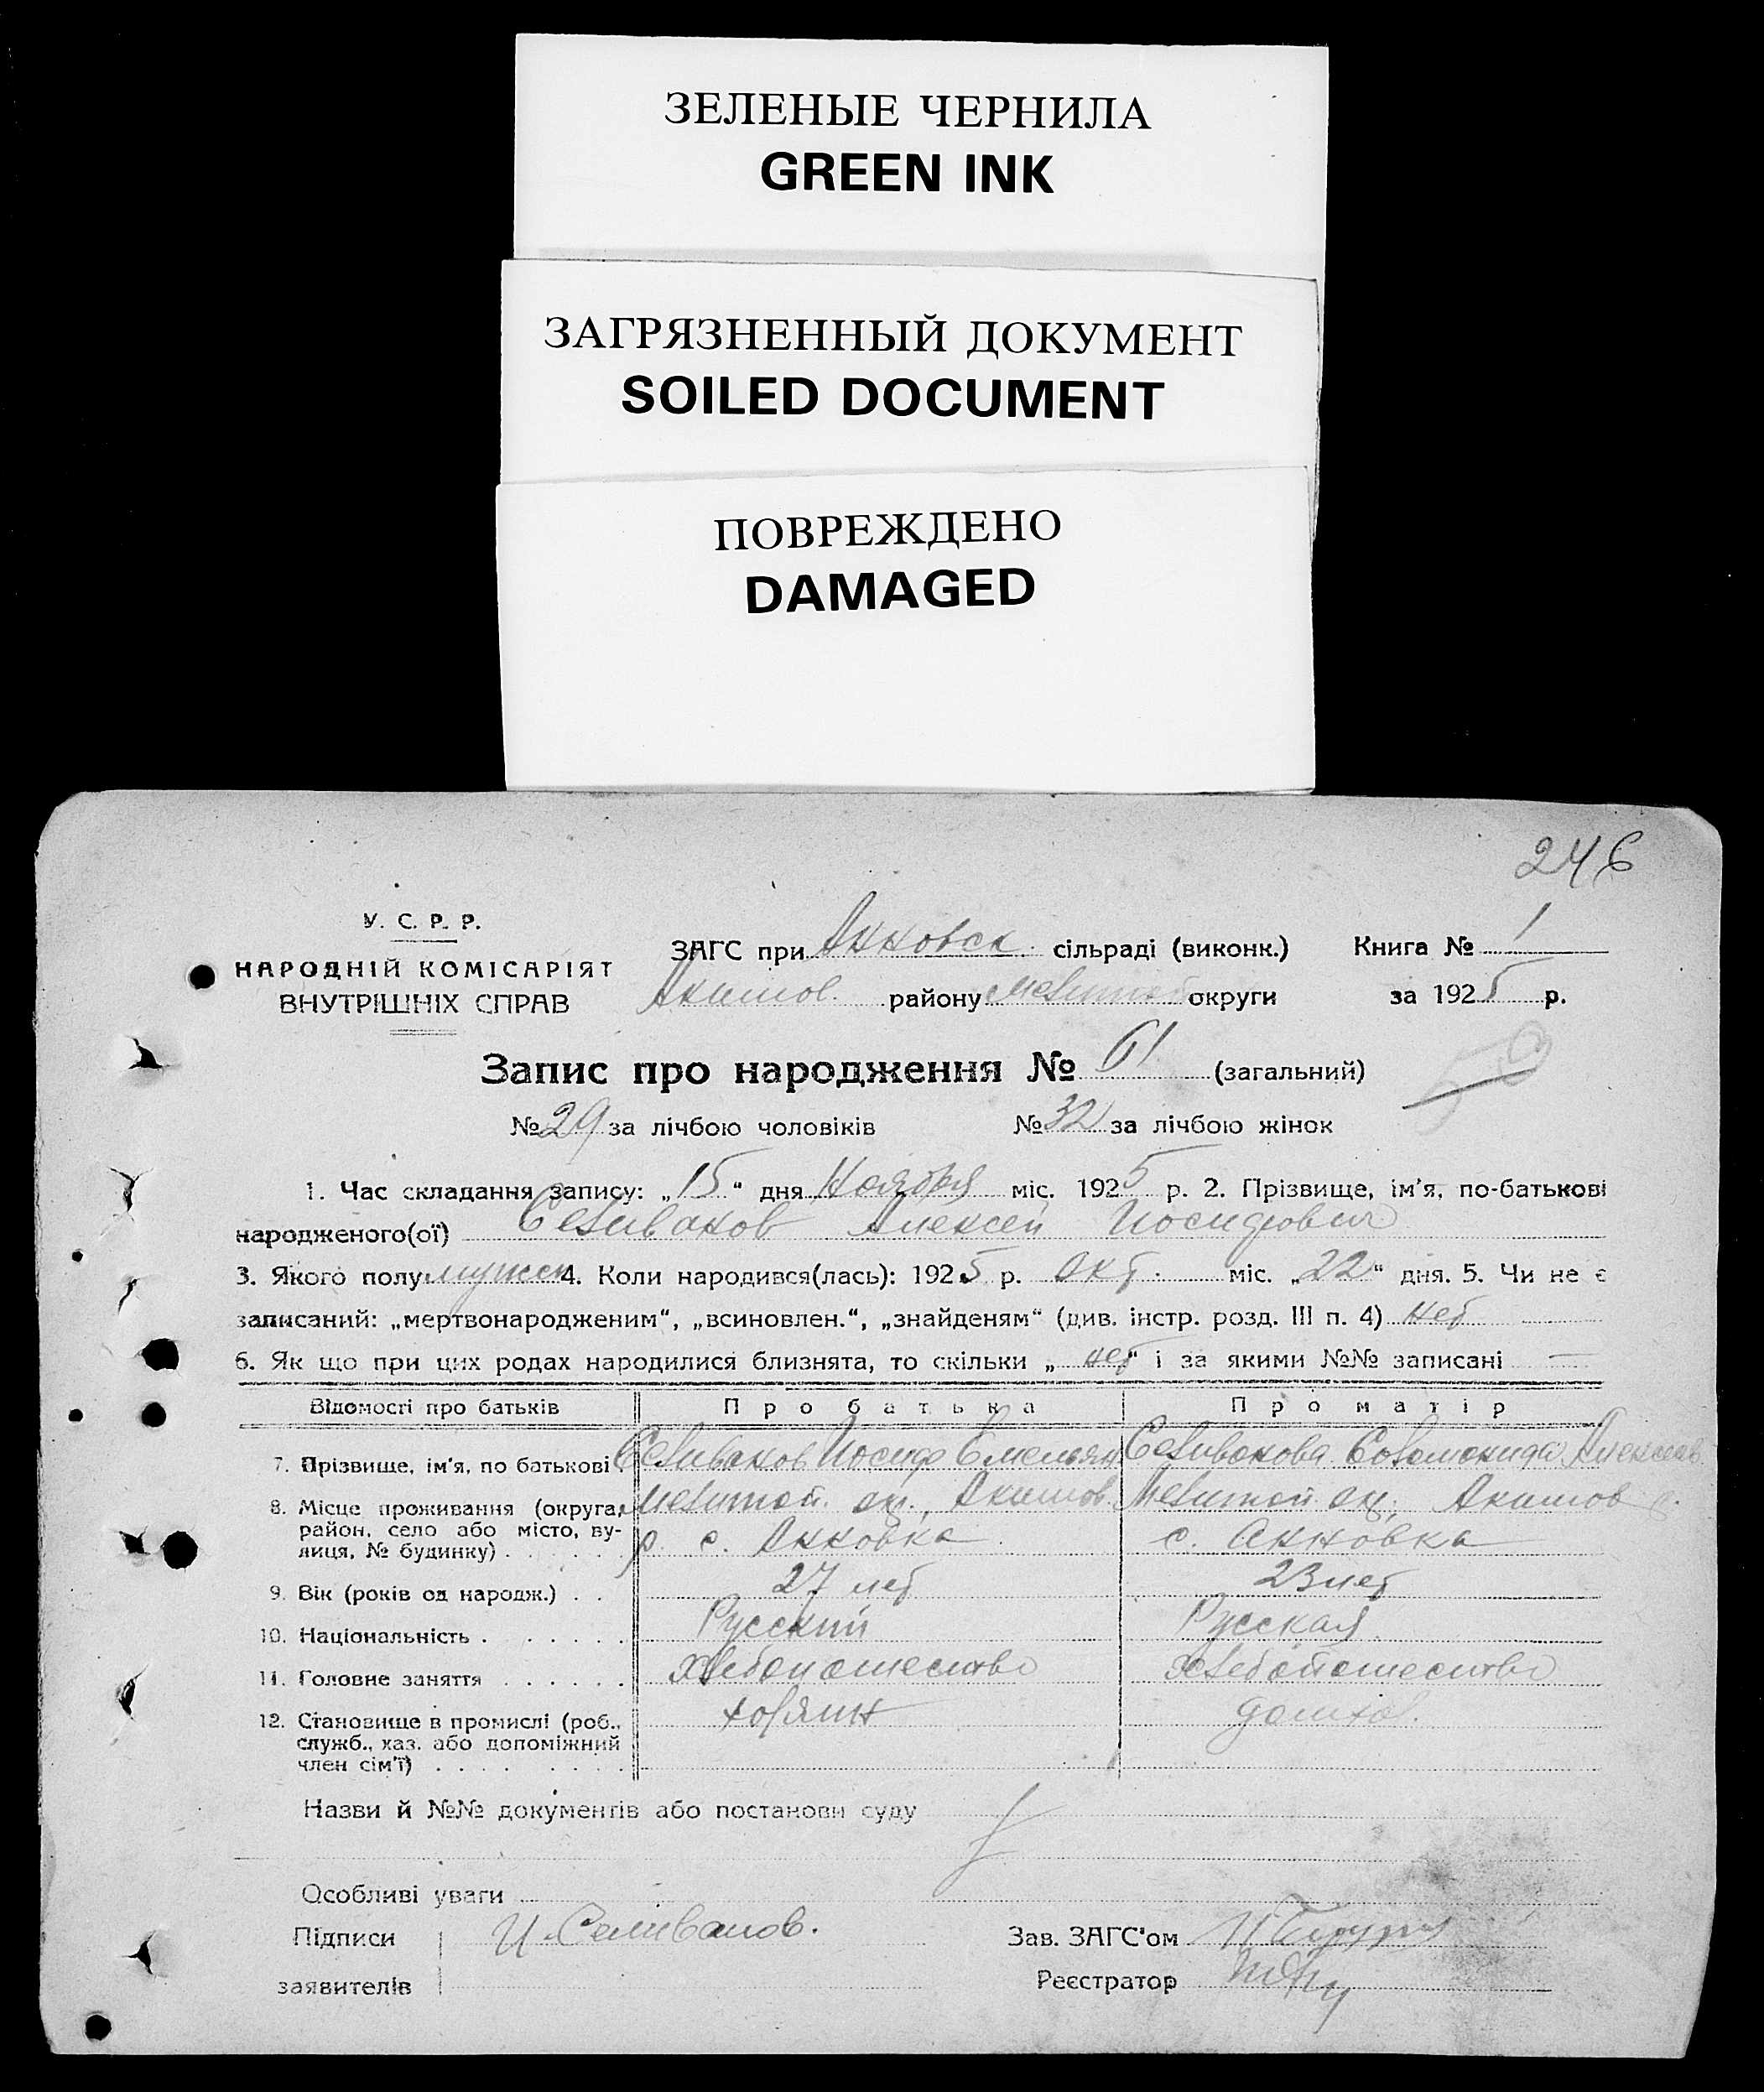 ЗЕЛЕНЫЕ ЧЕРНИЛА
GREEN INK
ЗАГРЯЗНЕННЫЙ ДОКУМЕНТ
SOILED DOCUMENT
ПОВРЕЖДЕНО
DAMAGED
246
У. С. Р. Р.
НАРОДНІЙ КОМІСАРІЯТ
ВНУТРІШНІХ СПРАВ
ЗАГС при Анновск. сільраді (виконк.) Книга № 1
Акимов. району Мелитоп округи за 1925 р.
Запис про народження № 61 (загальний)
50
№ 29 за лічбою чоловіків № 32 за лічбою жінок
1. Час складання запису: „15“ дня Ноября міс. 1925 р. 2. Прізвище, ім'я, по-батькові
народженого(ої) Селиванов Алексей Иосифович
3. Якого полу мужск 4. Коли народився(лась): 1925 р. Окт. міс. „22“ дня. 5. Чи не є
записаний: „мертвонародженим“, „всиновлен.“, „знайденям“ (див. інстр. розд. III п. 4) нет
6. Як що при цих родах народилися близнята, то скільки „нет“ і за якими №№ записані —
Відомості про батьків Про батька Про матір
7. Прізвище, ім'я, по батькові Селиванов Иосиф Емельян Селиванова Соломонида Алексеев.
8. Місце проживання (округа, Мелитоп. ок., Акимов. Мелитоп ок. Акимов р.
район, село або місто, ву- р. с. Анновка с. Анновка
лиця, № будинку)
9. Вік (років од народж.) 27 лет 23 лет
10. Національність Русский Русская
11. Головне заняття Хлебопашество Хлебопашество
12. Становище в промислі (роб., хозяин домхоз.
служб., хаз. або допоміжний
член сім'ї)
Назви й №№ документів або постанови суду
Особливі уваги
Підписи И. Селиванов. Зав. ЗАГС'ом
заявителів Реєстратор